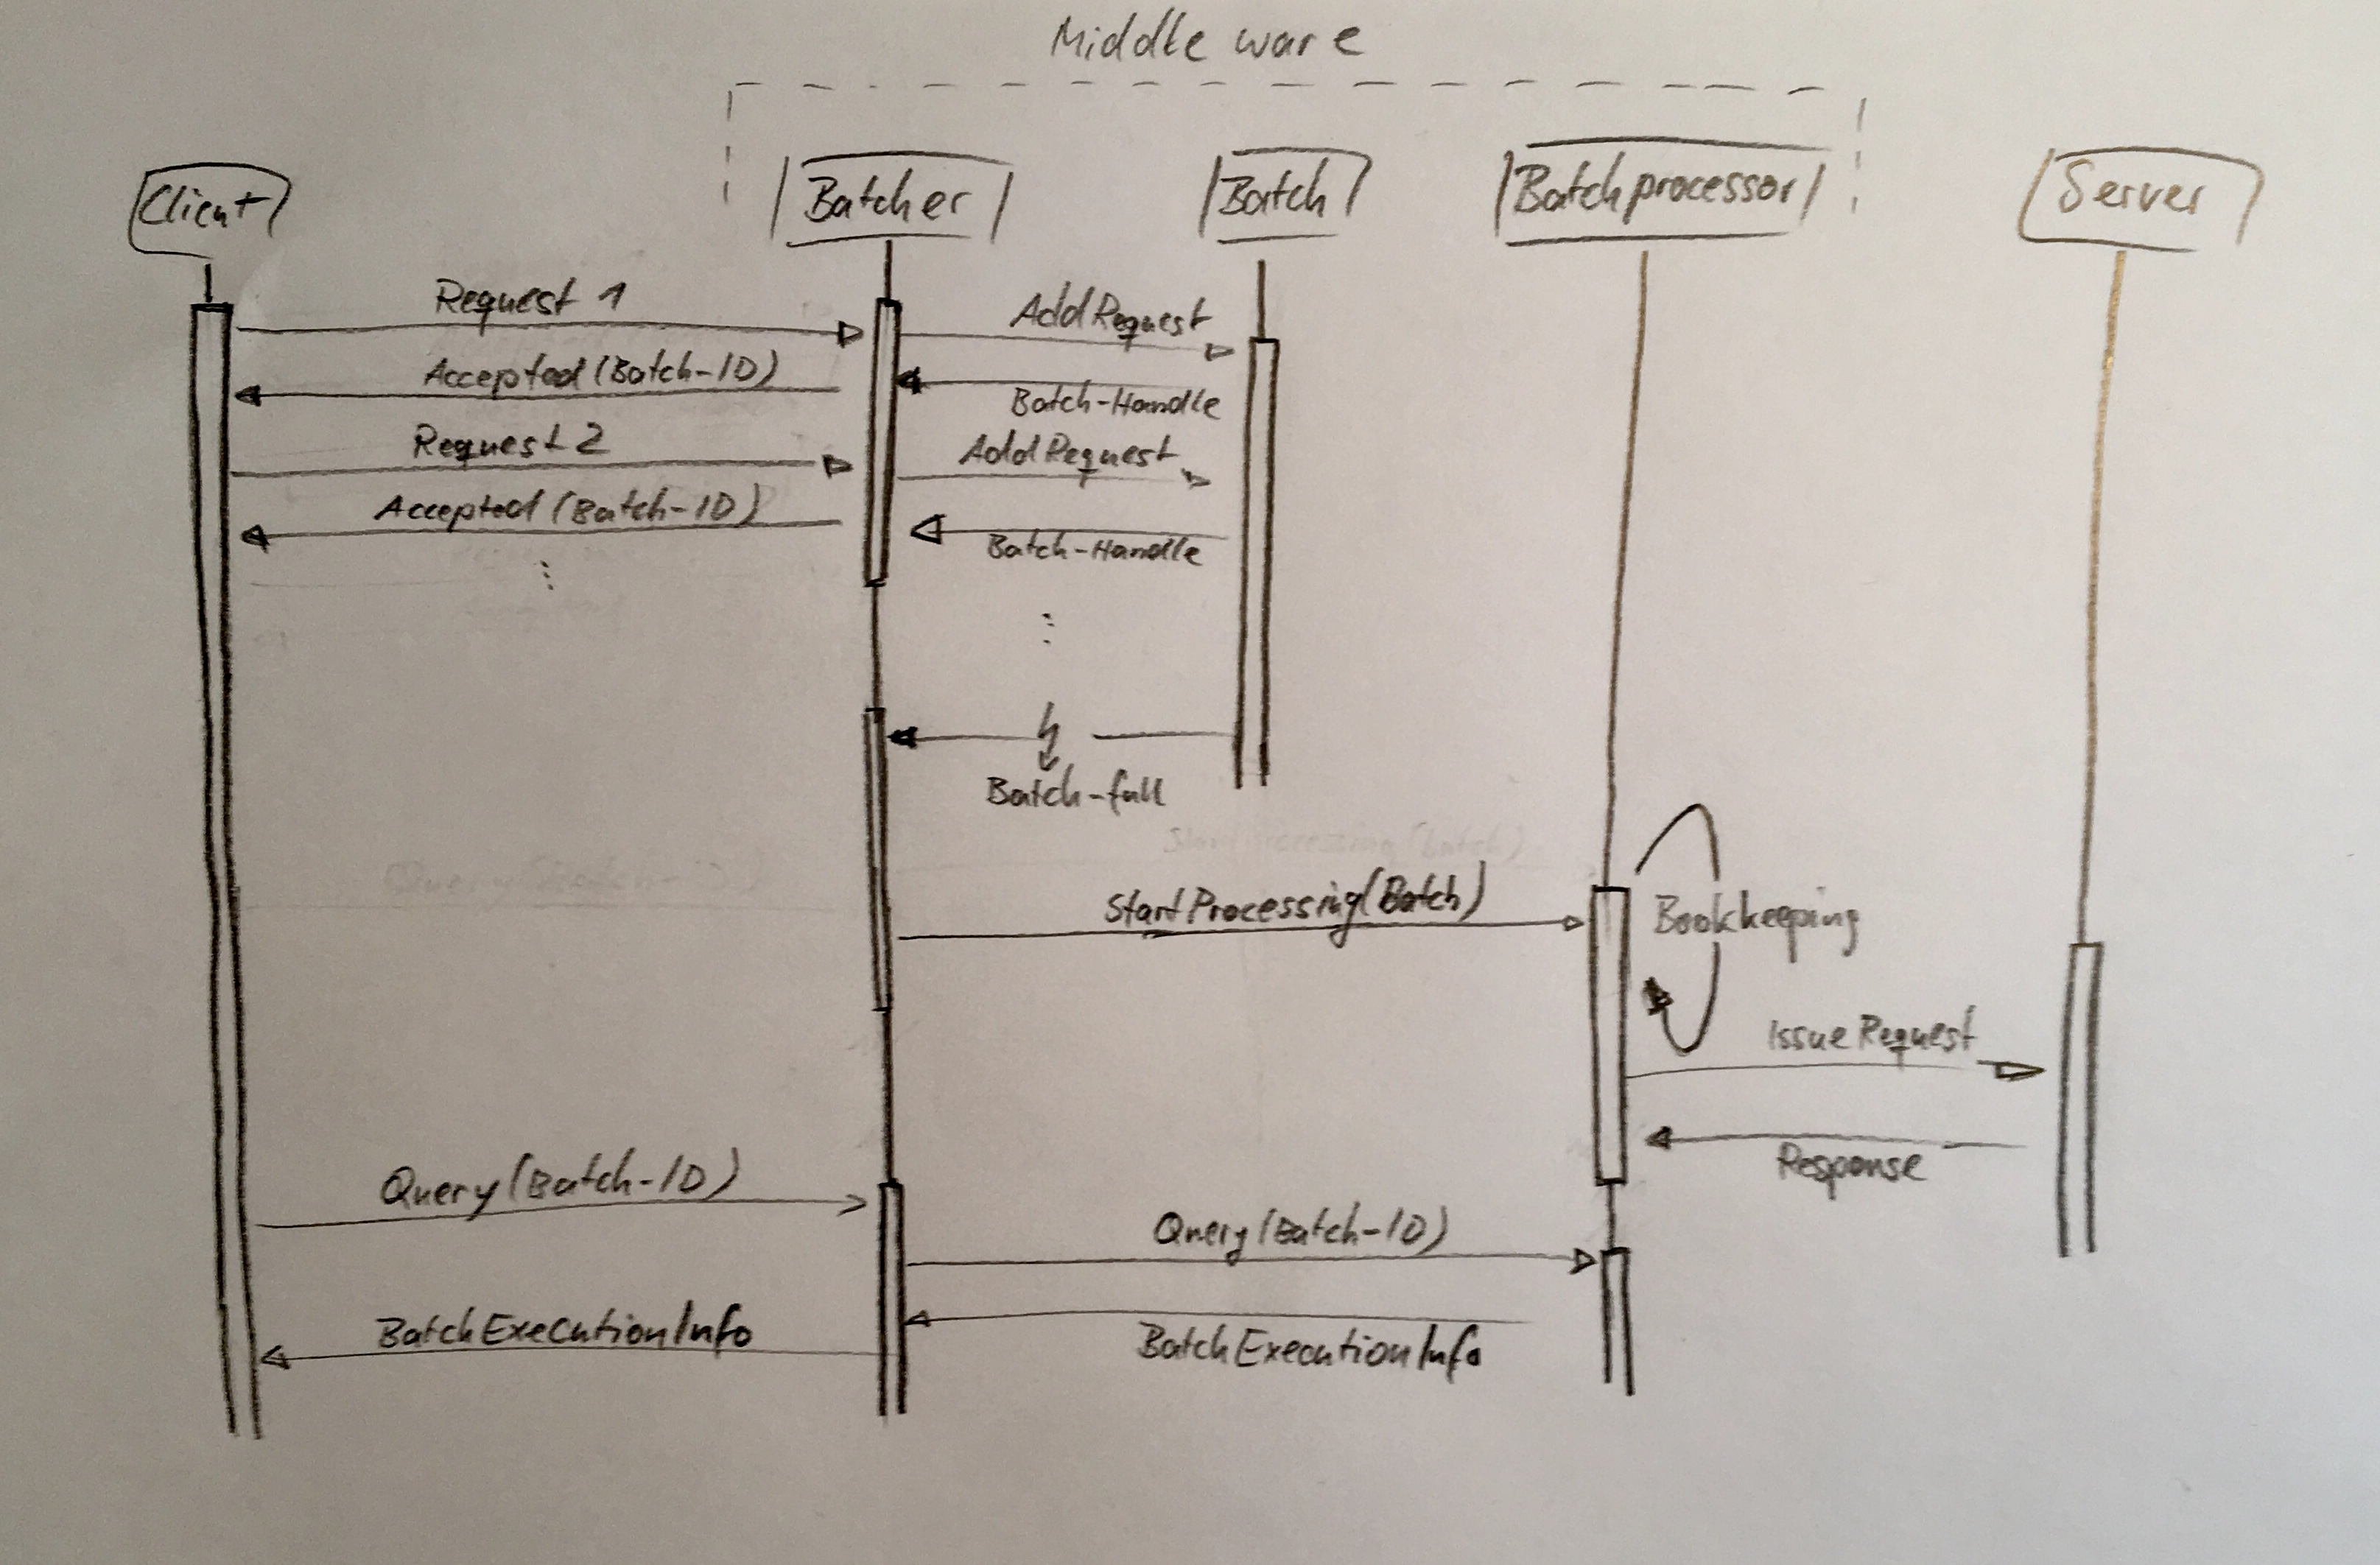 Middleware
Client
Batcher
Batch
Batchprocessor
Server
Request 1
AddRequest
Accepted (Batch-ID)
Batch-Handle
Request 2
AddRequest
Accepted (Batch-ID)
Batch-Handle
Batch-full
StartProcessing(Batch)
Bookkeeping
IssueRequest
Response
Query (Batch-ID)
Query (Batch-ID)
BatchExecutionInfo
BatchExecutionInfo